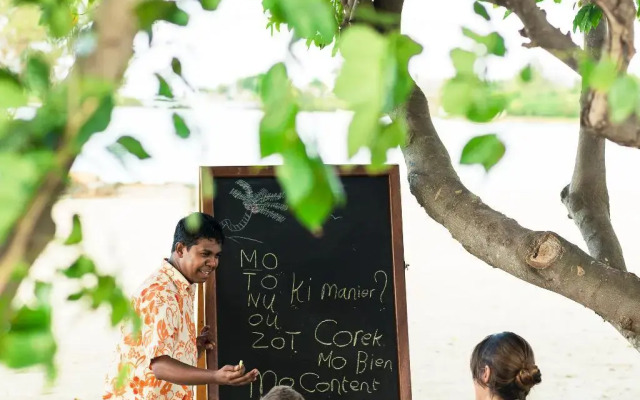 MO
TO
NU Ki Manier?
OU
ZOT Corek
Mo Bien
Mo Content